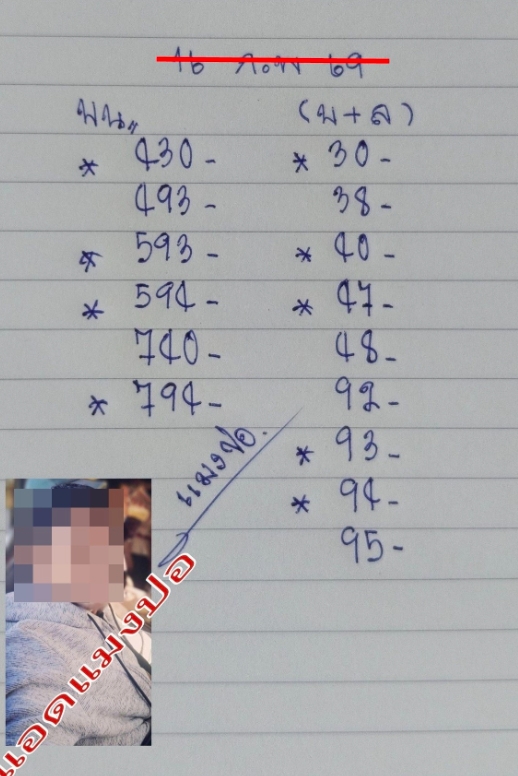 16 ก.พ 69
บน,, (บ+ล)
* 430- * 30-
493- 38-
* 593- * 40-
* 594- * 47-
740- 48-
* 794- 92-
* 93-
* 94-
95-
แมงปอ.
แอดแมงปอ